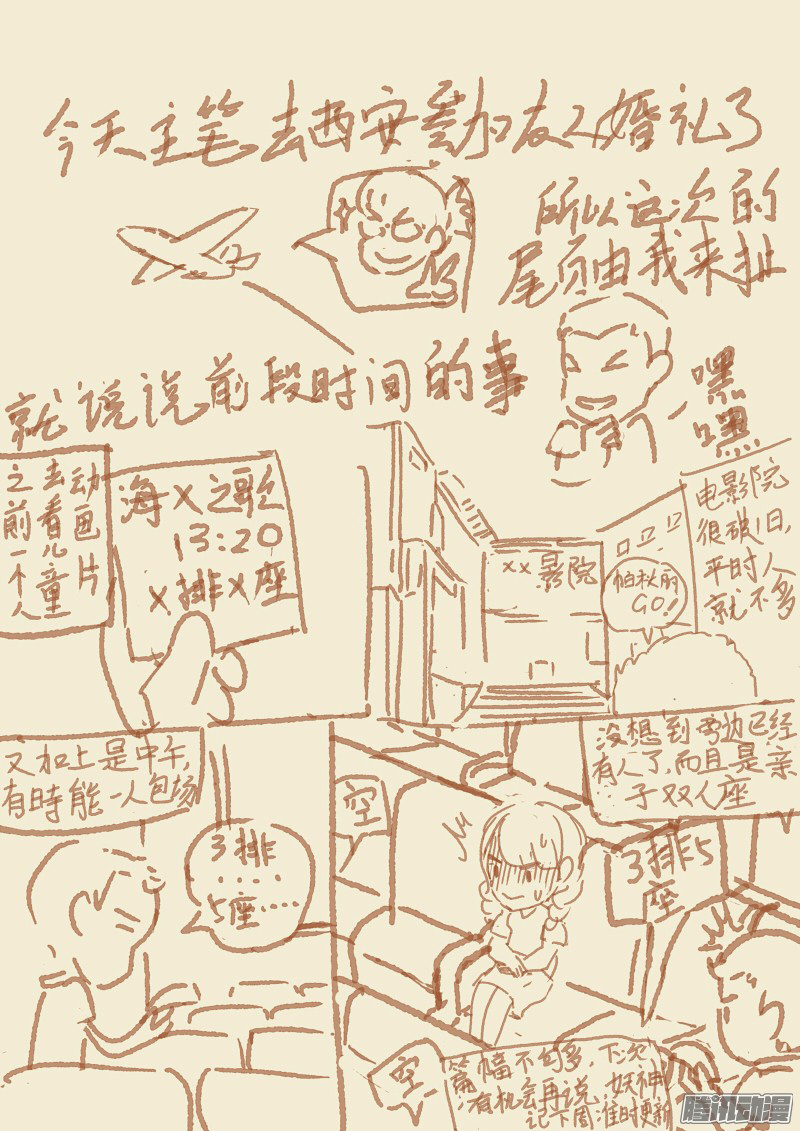 今天主笔去西安参加友人婚礼了
所以这次的
尾页由我来扯
就说说前段时间的事
嘿
嘿
之前一个人
去看儿童
动画片
海X之歌
13:20
X排X座
xx影院
帕秋丽
GO!
电影院
很破旧,
平时人
就不多
又加上是中午,
有時能一人包场
3排
....
5座……
没想到旁边已经
有人了,而且是亲
子双人座
空
3排5
座
空
篇幅不够多,下次
有机会再说,妖神
记下周准时更新
腾讯动漫